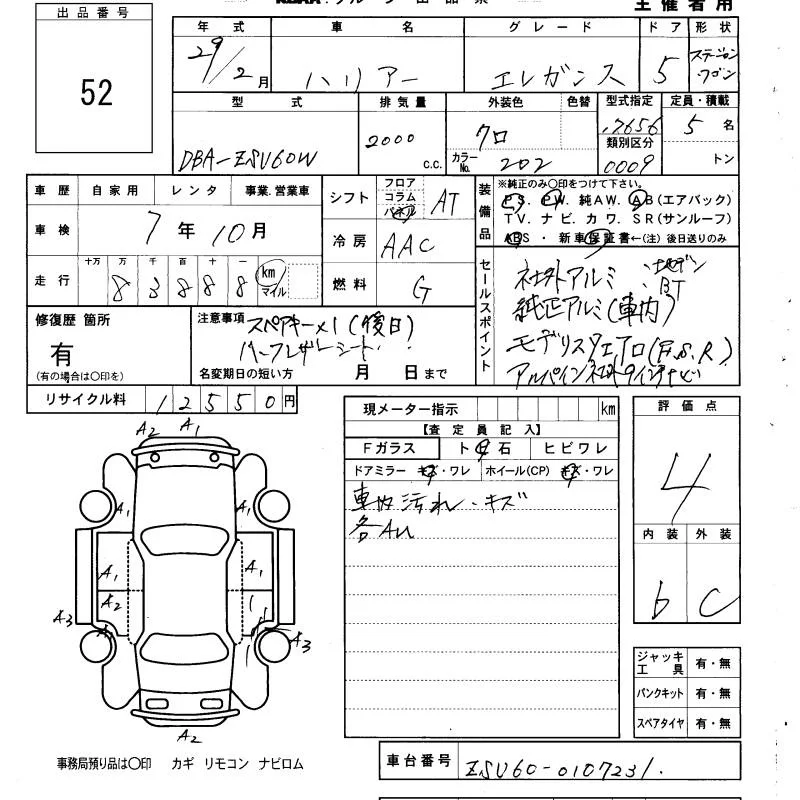 出品番号
52
主催者用
年式
29/2月
車名
ハリアー
グレード
エレガンス
ドア
5
形状
ステーションワゴン
型式
DBA-ZSU60W
排気量
2000
c.c.
外装色
クロ
色替
カラーNo.
202
型式指定
17656
類別区分
0009
定員・積載
5名
トン
車歴 自家用 レンタ 事業.営業車
車検 7年10月
走行 十万 万 千 百 十 一
8 3 8 8 8
km
マイル
シフト
フロア
コラム
パネル
AT
冷房 AAC
燃料 G
装備品
※純正のみ〇印をつけて下さい。
P S. P W. 純A W. A B (エアバック)
T V. ナビ. カワ. S R (サンルーフ)
ABS・新車保証書←(注) 後日送りのみ
セールスポイント
社外アルミ
BT
純正アルミ(車内)
モデリスタエアロ(F.S.R)
修復歴 箇所
有
(有の場合は〇印を)
注意事項
スペアキー×1(後日)
ハーフレザーシート
名変期日の短い方 月 日まで
リサイクル料 12550円
現メーター指示 km
【査定員記入】
Fガラス ト 石 ヒビワレ
ドアミラー キズ・ワレ ホイール(CP) キズ・ワレ
車内汚れ・キズ
各AU
評価点
4
内装 外装
b C
A2 A1
A1 A1
A1 A1
A2
A3 A3
A2
ジャッキ工具 有・無
パンクキット 有・無
スペアタイヤ 有・無
事務局預り品は〇印 カギ リモコン ナビロム
車台番号 ZSU60-0107231